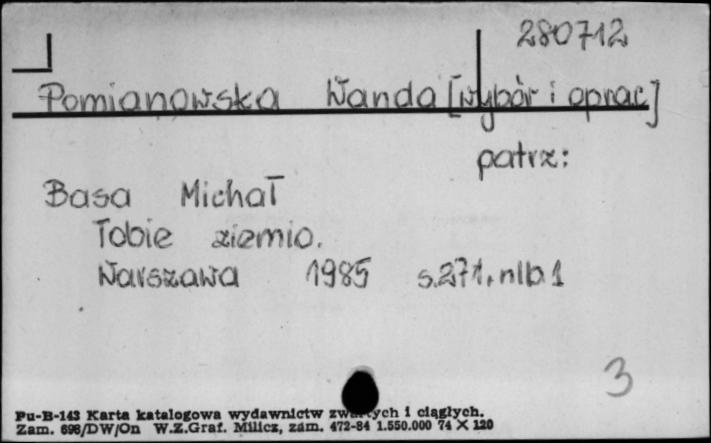 280712
Pomianowska Wanda [wybór i oprac]
patrz:
Basa Michał
Tobie ziemio.
Warszawa 1985 s.271, nlb.1
3
Pu-B-143 Karta katalogowa wydawnictw zwartych i ciągłych.
Zam. 698/DW/On W.Z.Graf. Milicz, zam. 472-84 1.550.000 74 X 120